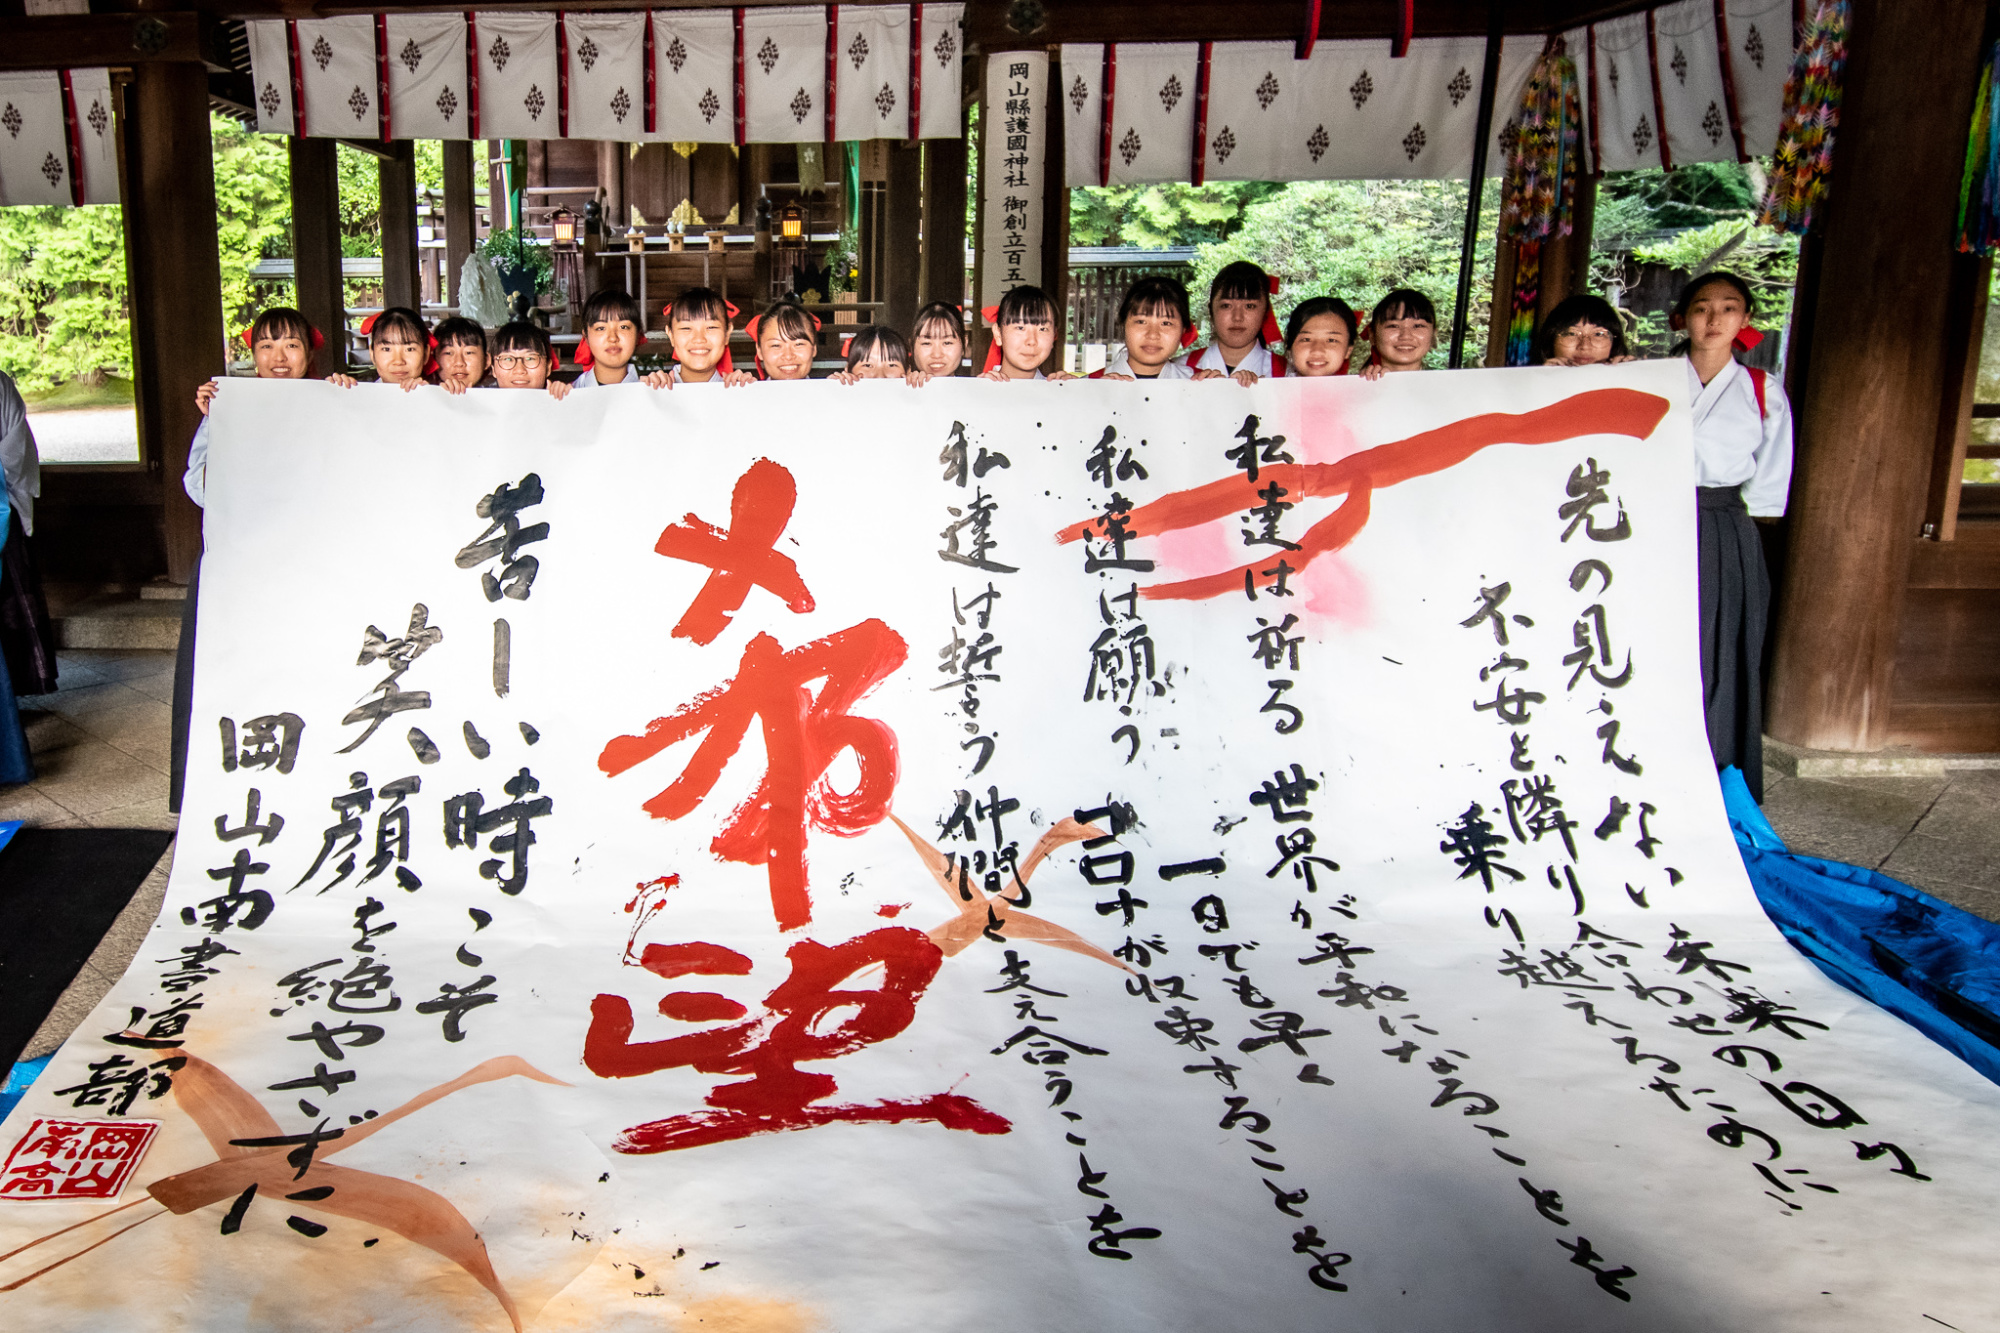 岡山縣護國神社 御創立百五
先の見えない未来の日々
不安と隣り合わせの
乗り越えるために
私達は祈る 世界が平和になることを
私達は願う 一日でも早く
コロナが収束することを
私達は誓う 仲間と支え合うことを
希望
苦しい時こそ
笑顔を絶やさずに
岡山南書道部